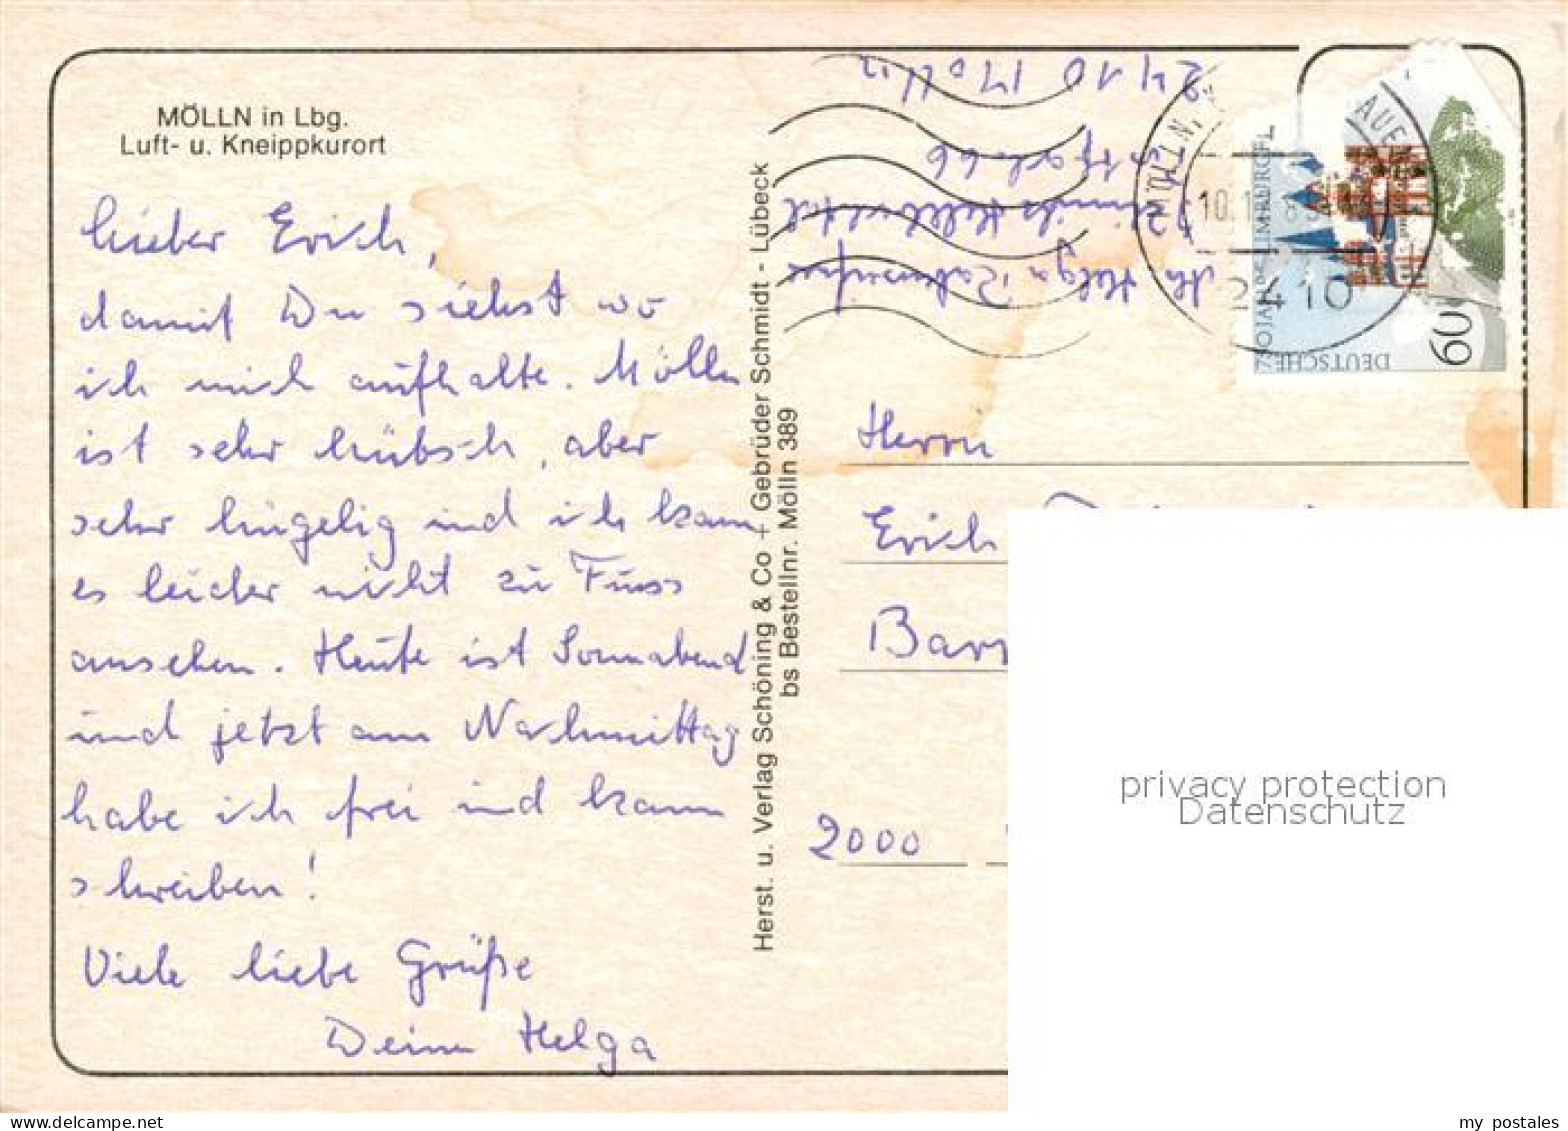 MÖLLN in Lbg.
Luft- u. Kneippkurort
Lieber Erich,
damit Du siehst wo
ich mich aufhalte. Mölln
ist sehr hübsch, aber
sehr hügelig und ich kann
es leider nicht zu Fuss
ansehen. Heute ist Sonnabend
und jetzt am Nachmittag
habe ich frei und kann
schreiben!
Viele liebe Grüße
Deine Helga
Herst. u. Verlag Schöning & Co + Gebrüder Schmidt - Lübeck
bs Bestellnr. Mölln 389
Helga
2410 Mölln
MÖLLN,
10.1
2410
750 JAHRE LIMBURG
DEUTSCHE
60
Herrn
Erich
Barm
2000
privacy protection
Datenschutz
my postales